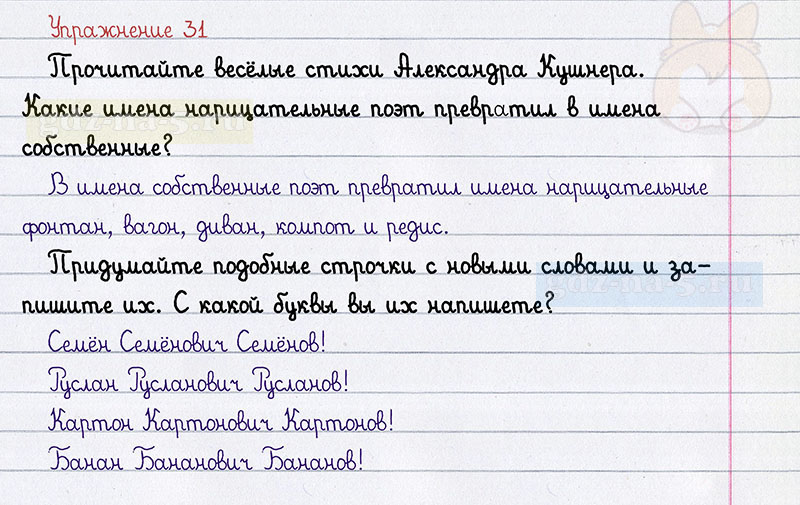 Упражнение 31
Прочитайте весёлые стихи Александра Кушнера.
Какие имена нарицательные поэт превратил в имена
собственные?
В имена собственные поэт превратил имена нарицательные
фонтан, вагон, диван, компот и редис.
Придумайте подобные строчки с новыми словами и за-
пишите их. С какой буквы вы их напишете?
Семён Семёнович Семёнов!
Руслан Русланович Русланов!
Картон Картонович Картонов!
Банан Бананович Бананов!
gdz-na-5.ru
gdz-na-5.ru